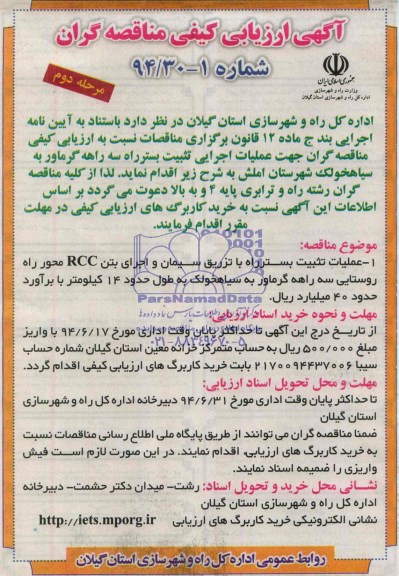 آگهی ارزیابی کیفی مناقصه گران
شماره ۱-۹۴/۳۰
مرحله دوم
جمهوری اسلامی ایران
وزارت راه و شهرسازی
اداره کل راه و شهرسازی استان گیلان
اداره کل راه و شهرسازی استان گیلان در نظر دارد باستناد به آیین نامه
اجرایی بند ج ماده ۱۲ قانون برگزاری مناقصات نسبت به ارزیابی کیفی
مناقصه گران جهت عملیات اجرایی تثبیت بستر راه سه راهه گرماور به
سیاهخولک شهرستان املش به شرح زیر اقدام نماید. لذا از کلیه مناقصه
گران رشته راه و ترابری پایه ۴ و به بالا دعوت می گردد بر اساس
اطلاعات این آگهی نسبت به خرید کاربرگ های ارزیابی کیفی در مهلت
مقرر اقدام فرمایند.
موضوع مناقصه:
۱-عملیات تثبیت بستر راه با تزریق سیمان و اجرای بتن RCC محور راه
روستایی سه راهه گرماور به سیاهخولک به طول حدود ۱۴ کیلومتر با برآورد
حدود ۴۰ میلیارد ریال.
ParsNamadData
مهلت و نحوه خرید اسناد ارزیابی:
از تاریخ درج این آگهی تا حداکثر پایان وقت اداری مورخ ۹۴/۶/۱۷ با واریز
مبلغ ۵۰۰/۰۰۰ ریال به حساب متمرکز خزانه معین استان گیلان شماره حساب
۰۲۱-۸۸۳۴۹۶۷۰-۵
سیبا ۲۱۷۰۰۹۴۴۳۷۰۰۶ بابت خرید کاربرگ های ارزیابی کیفی اقدام گردد.
مهلت و محل تحویل اسناد ارزیابی:
تا حداکثر پایان وقت اداری مورخ ۹۴/۶/۳۱ دبیرخانه اداره کل راه و شهرسازی
استان گیلان
ضمنا مناقصه گران می توانند از طریق پایگاه ملی اطلاع رسانی مناقصات نسبت
به خرید کاربرگ های ارزیابی، اقدام نمایند. در این صورت لازم است فیش
واریزی را ضمیمه اسناد نمایند.
نشانی محل خرید و تحویل اسناد: رشت- میدان دکتر حشمت- دبیرخانه
اداره کل راه و شهرسازی استان گیلان
نشانی الکترونیکی خرید کاربرگ های ارزیابی http://iets.mporg.ir
روابط عمومی اداره کل راه و شهرسازی استان گیلان